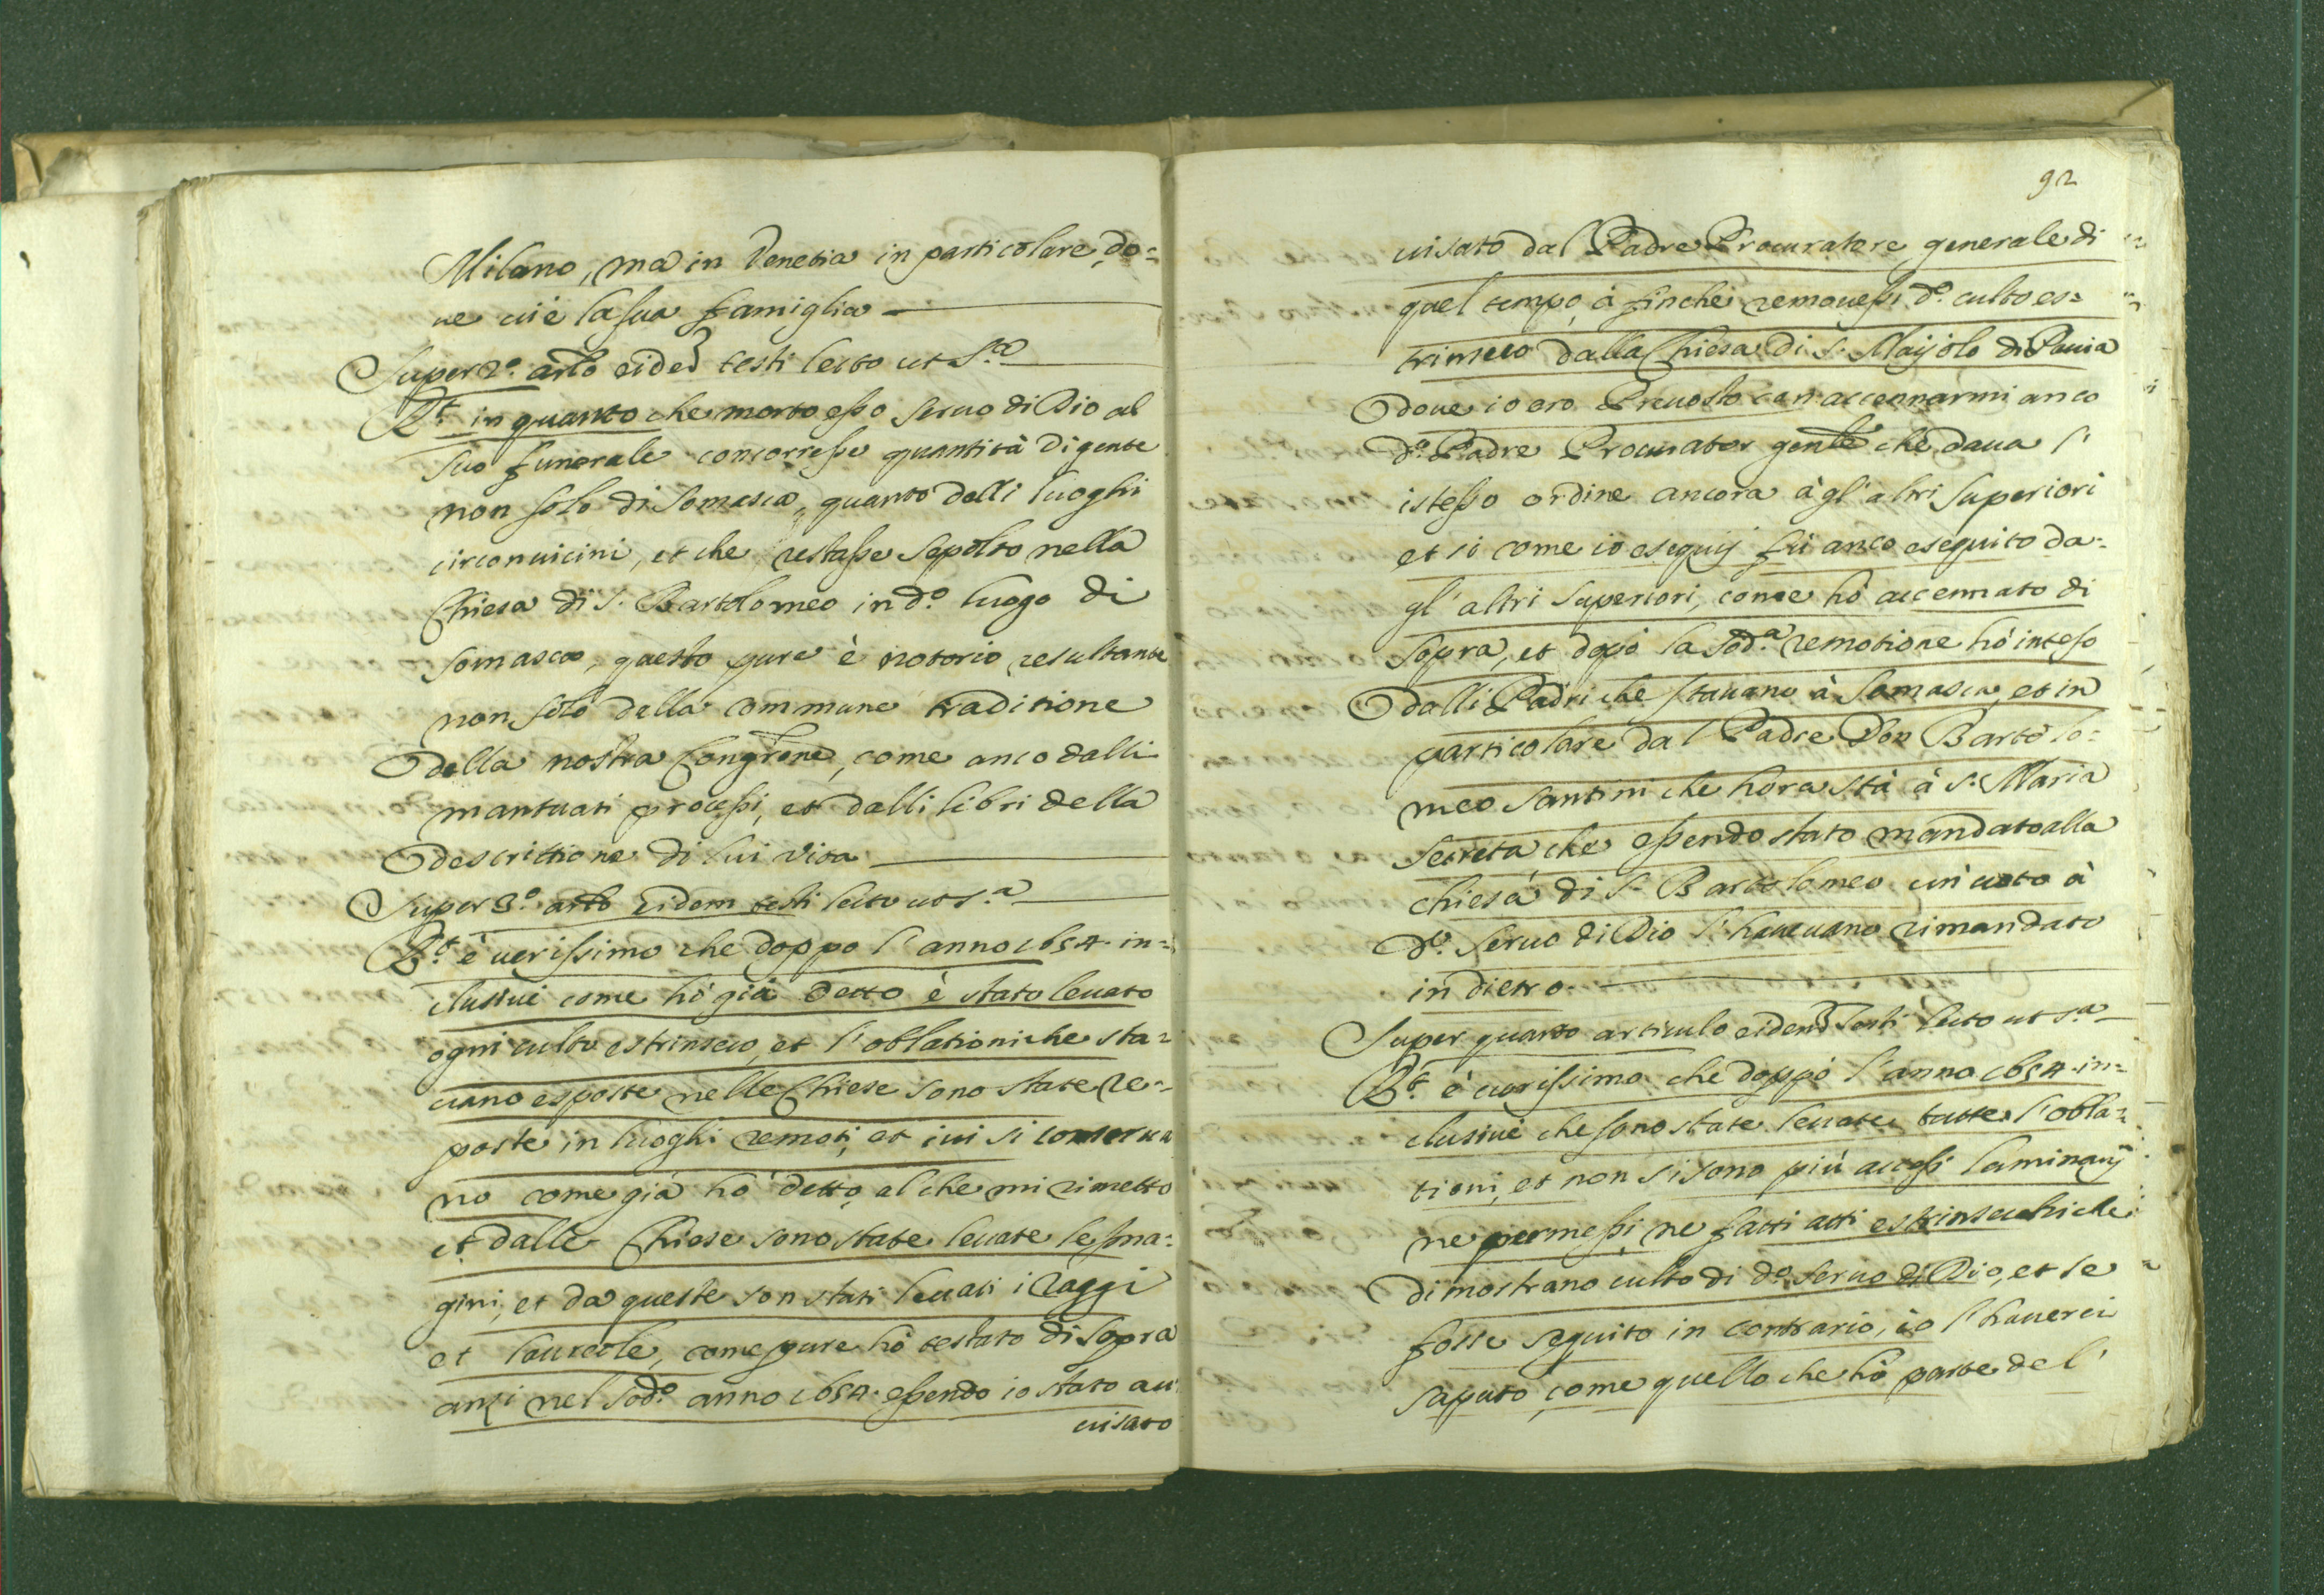 Milano, ma in Venetia in particolare, do=
ue ui è la sua famiglia
Super 2.º artlo eidem testi lecto ut s.ª
R.t in quanto che morto esso Seruo di Dio al
suo funerale concorresse quantità di gente
non solo di Somasca, quanto delli luoghi
circonuicini, et che restasse sepolto nella
Chiesa di S. Bartolomeo in d.º luogo di
Somasca, questo pure è notorio resultante
non solo della commune traditione
della nostra Congrone, come anco dalli
mantuati processi, et dalli libri della
descrittione di lui vita
Super 3.º artlo eidem testi lecto ut s.ª
R.t è uerissimo che doppo l'anno 1654. in=
clusiuè come hò già detto è stato leuato
ogni culto estrinseco, et l'oblationi che sta=
uano esposte nelle Chiese sono state re=
poste in luoghi remoti, et iui si conserua
no come già hò detto, al che mi rimetto
et dalle Chiese sono state leuate le Ima=
gini, et da queste son stati leuati i raggi
et laureole, come pure hò testato di sopra
anzi nel sod.º anno 1654. essendo io stato au
uisato
92
uisato dal Padre Procuratore generale di
quel tempo, à finche remouessi d.º culto es=
trinseco dalla Chiesa di S. Maijolo di Pauia
doue io ero Preuosto con accennarmi anco
d.º Padre Procurator genle che daua l'
istesso ordine ancora à gl'altri Superiori
et si come io eseguij fù anco eseguito da=
gl'altri Superiori, come hò accennato di
sopra, et dopò la sod.ª remotione hò inteso
dalli Padri che stauano à Somasca, et in
particolare dal Padre Don Bartolo=
meo Santini che hora stà à S. Maria
Secreta, che essendo stato mandato alla
chiesa di S. Bartolomeo un uoto à
d.º Seruo di Dio l'haueuano rimandato
in dietro
Super quarto articulo eidem testi lecto ut s.ª
R.t è uerissimo che doppò l'anno 1654. in=
clusiuè che sono state leuate tutte l'obla=
tioni, et non si sono più accesi luminarij
ne permessi, ne fatti atti estrinsechi che
dimostrano culto di d.º Seruo di Dio, et se
fosse seguito in contrario, io l'hauerei
saputo, come quello che hò parte del'